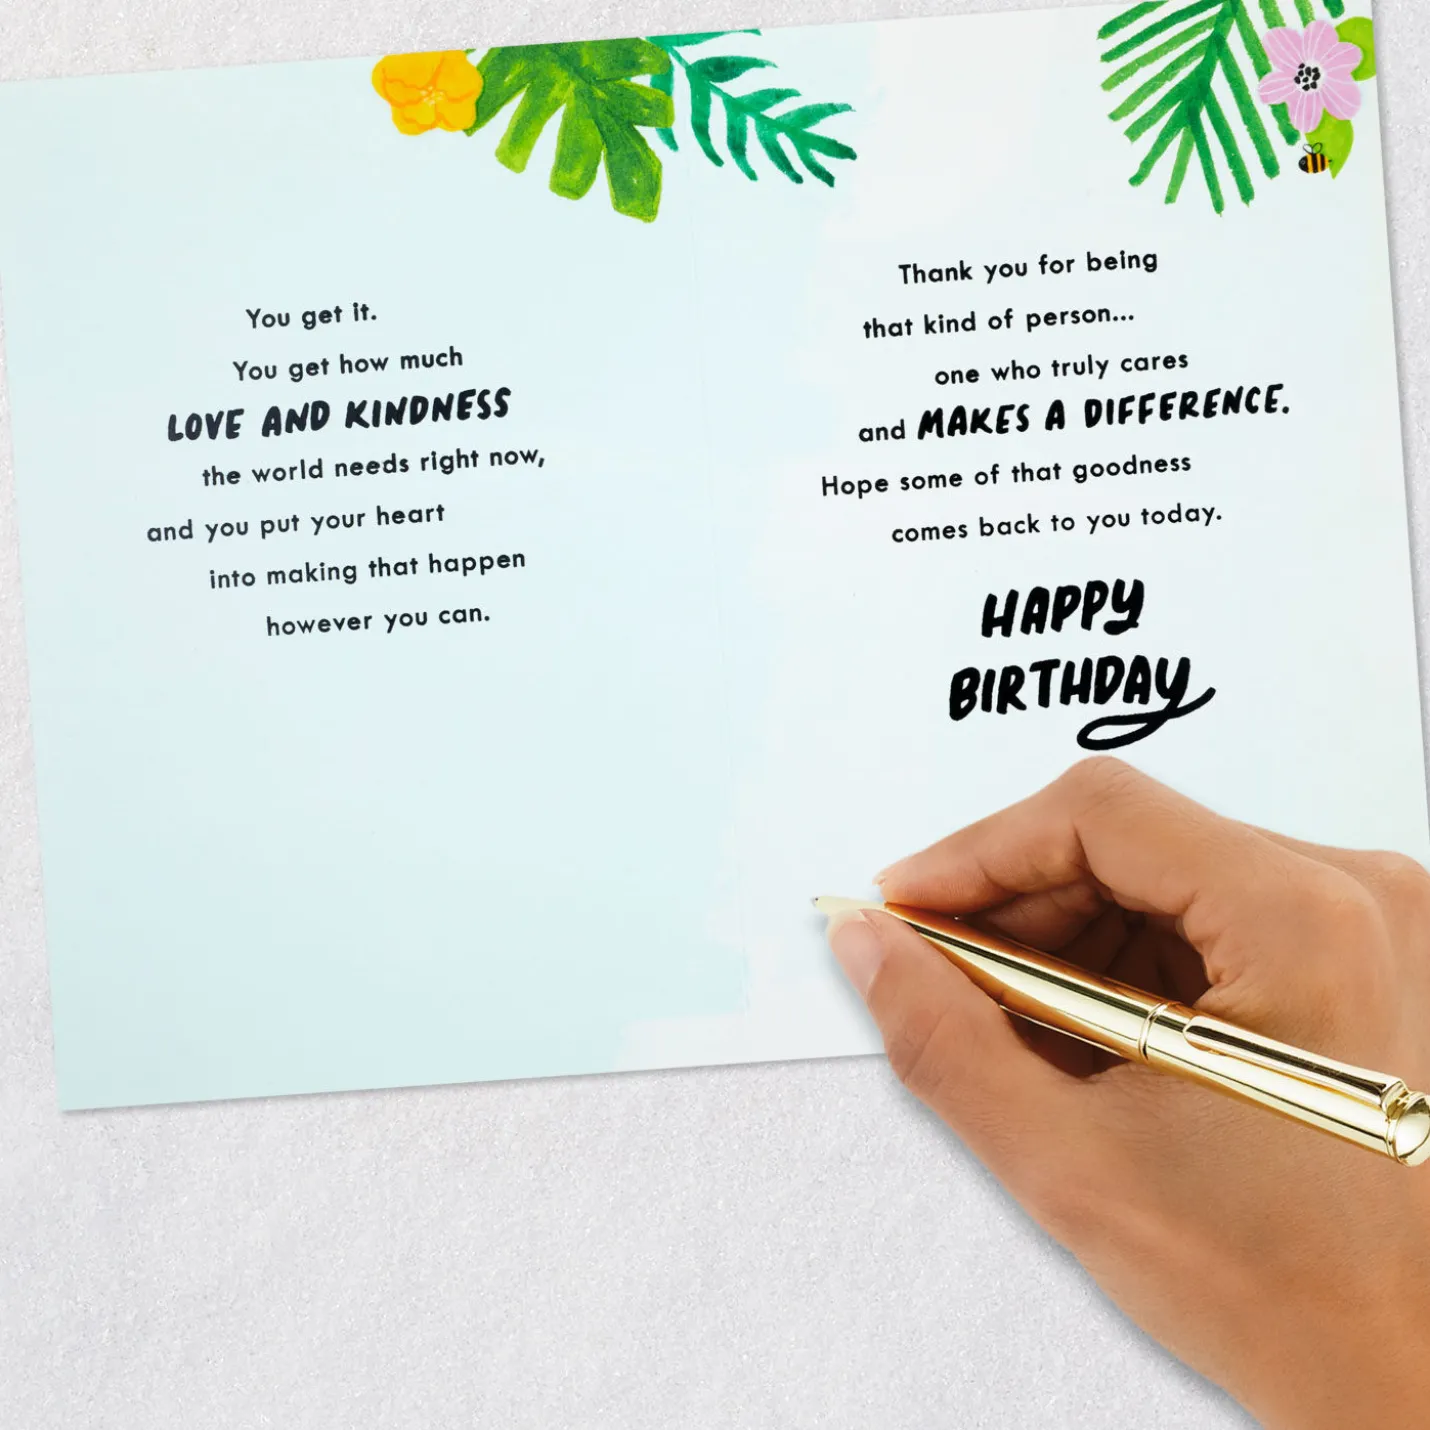 You get it.
You get how much
LOVE AND KINDNESS
the world needs right now,
and you put your heart
into making that happen
however you can.
Thank you for being
that kind of person...
one who truly cares
and MAKES A DIFFERENCE.
Hope some of that goodness
comes back to you today.
HAPPY
BIRTHDAY